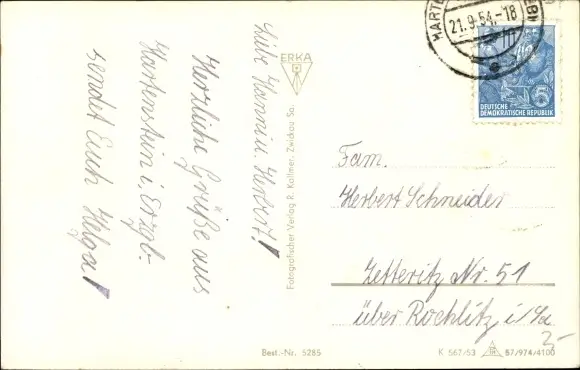 Liebe Hanni u. Herbert!
Herzliche Grüße aus
Hartenstein i. Erzgb.
sendet Euch Helga!
ERKA
Fotografischer Verlag R. Kallmer, Zwickau Sa.
HARTE
21.9.54.-18
e
DEUTSCHE
DEMOKRATISCHE REPUBLIK
5
Fam.
Herbert Schneider
Zetteritz Nr. 51
über Rochlitz i/Sa
3-
Best.-Nr. 5285
K 567/53
S7/974/4100